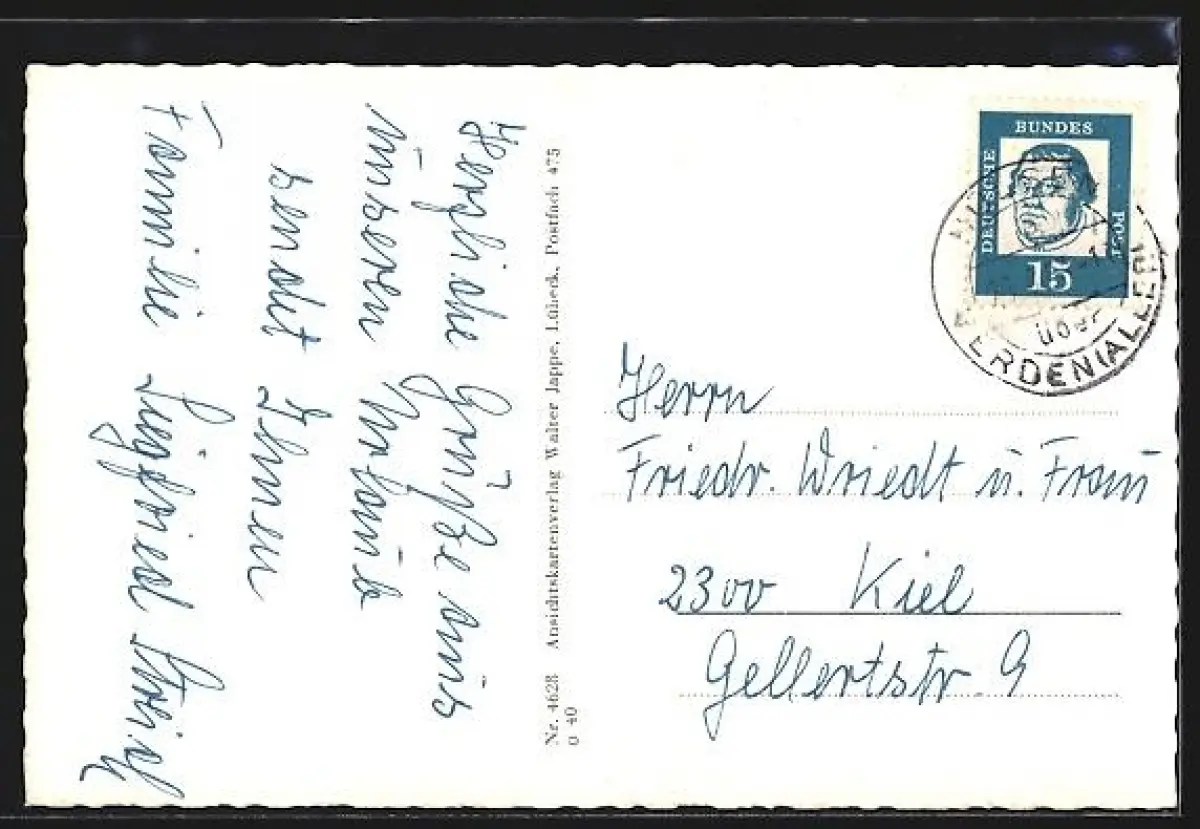 Herzliche Grüße aus
unserem Urlaub
sendet Ihnen
Familie Siegfried
Nr. 4628 Ansichtskartenverlag Walter Jappe, Lübeck, Postfach 475
0 40
DEUTSCHE BUNDES POST
15
über
Herrn
Friedr. Wriedt u. Frau
2300 Kiel
Gellertstr. 9